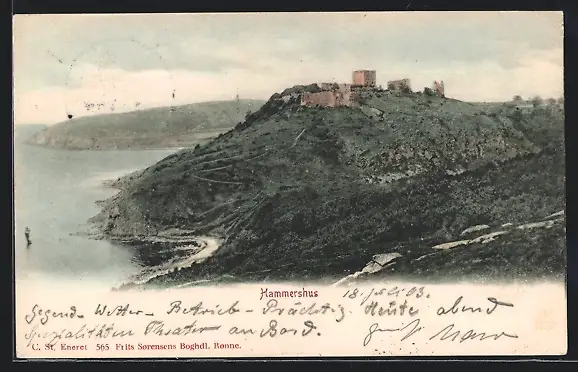 Hammershus
18. Juli 03.
Gegend- Wetter- Betrieb- Prächtig. Heute abend
Spezialitäten Theater an Bord.
C. St. Eneret 565 Frits Sørensens Boghdl. Rønne.